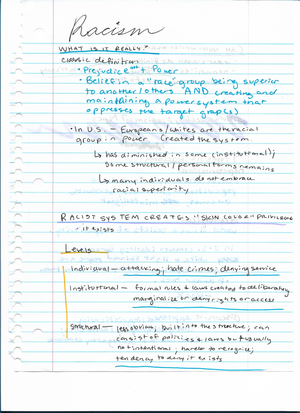 Racism
WHAT IS IT REALLY?
classic definition:
• Prejudice + Power
• Belief in a "race" group being superior
to another/others AND creating and
maintaining a power system that
oppresses the target group(s)
• In U.S. - Europeans/whites are the racial
group in power created the system
↳ has diminished in some (institutional);
some structural/personal forms remains
↳ many individuals do not embrace
racial superiority
RACIST SYSTEM CREATES "SKIN COLOR" PRIVILEGE
- it exists
Levels
Individual - attacking; hate crimes; denying service
Institutional - formal rules & laws created to deliberately
marginalize or deny rights or access
Structural - less obvious; built into the structure; can
consist of policies & laws but usually
not intentional; harder to recognize;
tendency to deny it exists